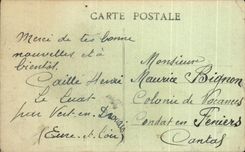 CARTE POSTALE
Merci de tes bonne
nouvelles et à
bientôt.
Caille Henri
Le Luat
par Vert en Drouais
(Eure et Loir)
Monsieur
Maurice Bignon
Colonie de Vacances
Condat en Feniers
Cantal